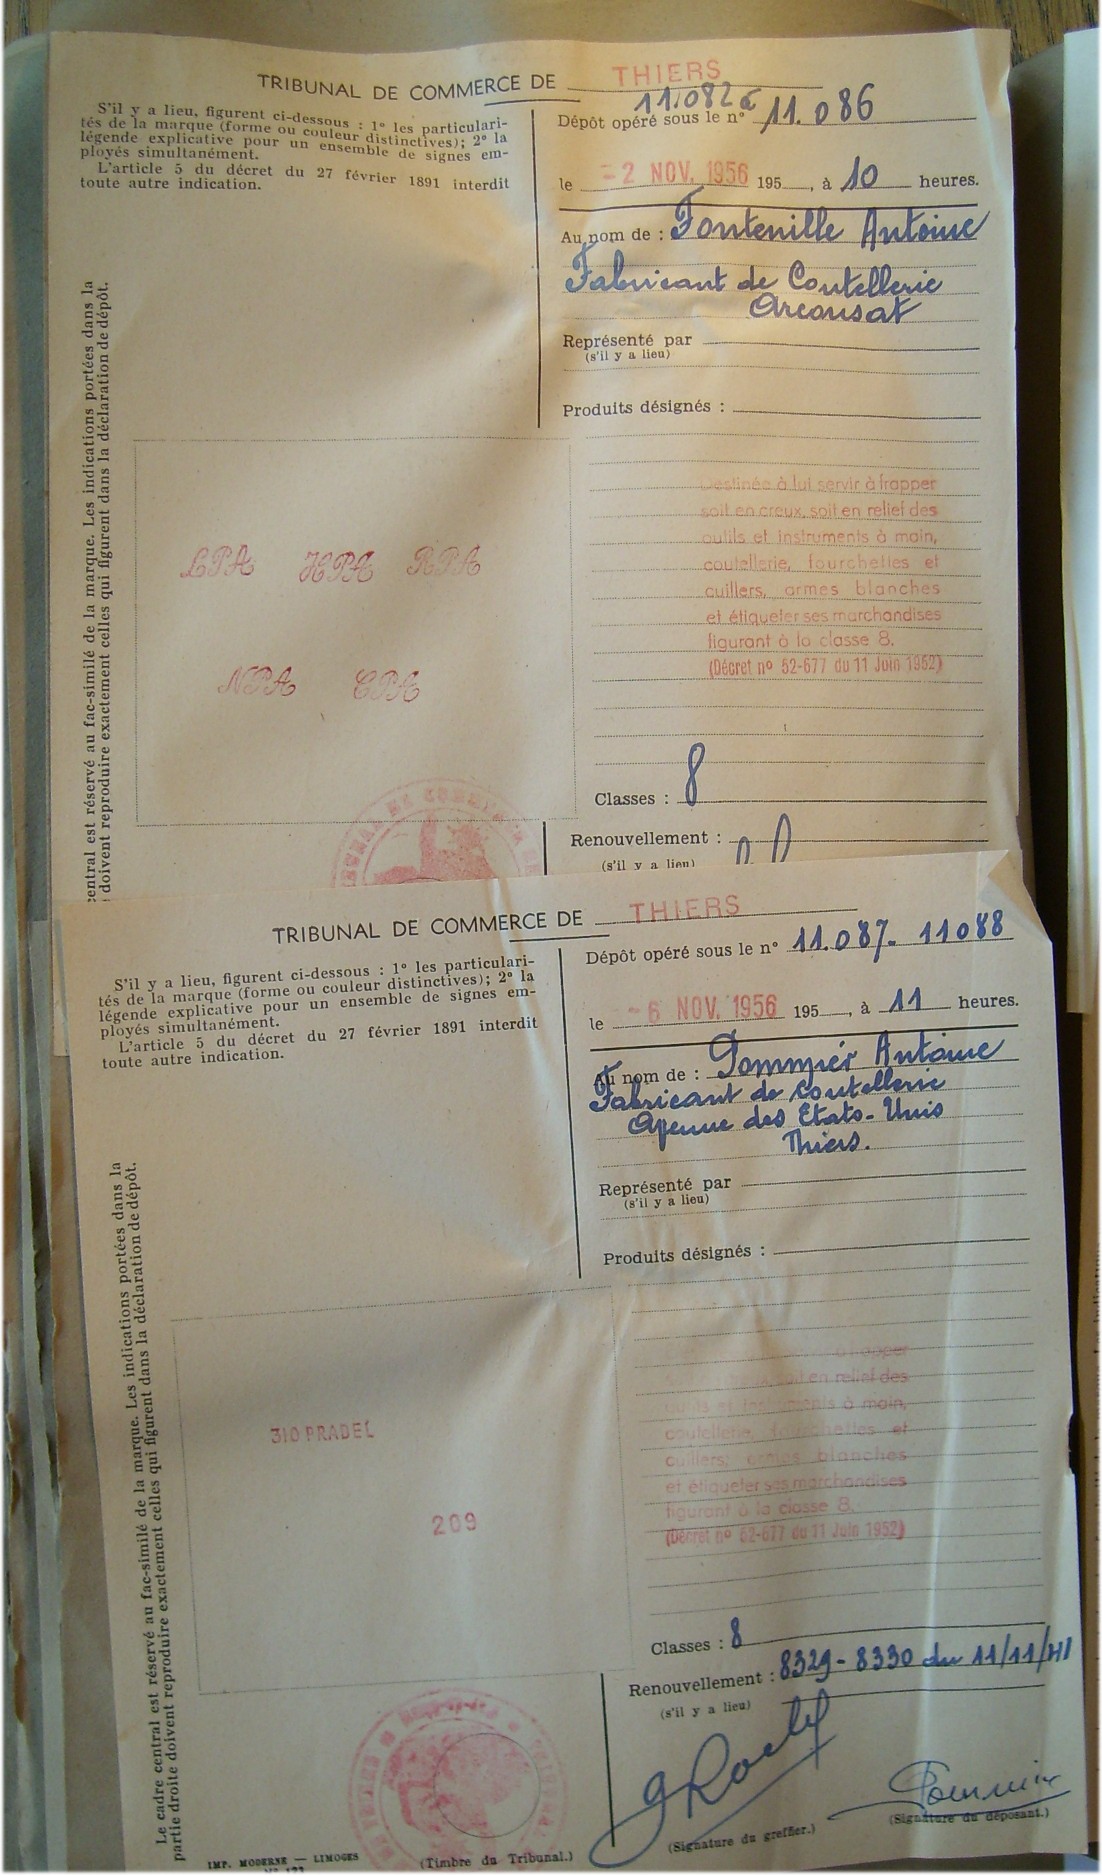 TRIBUNAL DE COMMERCE DE THIERS
S'il y a lieu, figurent ci-dessous : 1° les particulari-
tés de la marque (forme ou couleur distinctives); 2° la
légende explicative pour un ensemble de signes em-
ployés simultanément.
L'article 5 du décret du 27 février 1891 interdit
toute autre indication.
11.082 à
Dépôt opéré sous le n° 11.086
le - 2 NOV. 1956 195 , à 10 heures.
Au nom de : Fontenille Antoine
Fabricant de Coutellerie
Arconsat
Représenté par
(s'il y a lieu)
Produits désignés :
Destinée à lui servir à frapper
soit en creux, soit en relief des
outils et instruments à main,
coutellerie, fourchettes et
cuillers, armes blanches
et étiqueter ses marchandises
figurant à la classe 8.
(Décret n° 52-677 du 11 Juin 1952)
Classes : 8
Renouvellement :
(s'il y a lieu)
LPA HPA RPA
NPA CPA
central est réservé au fac-similé de la marque. Les indications portées dans la
doivent reproduire exactement celles qui figurent dans la déclaration de dépôt.
TRIBUNAL DE COMMERCE DE THIERS
S'il y a lieu, figurent ci-dessous : 1° les particulari-
tés de la marque (forme ou couleur distinctives); 2° la
légende explicative pour un ensemble de signes em-
ployés simultanément.
L'article 5 du décret du 27 février 1891 interdit
toute autre indication.
Dépôt opéré sous le n° 11.087- 11088
le - 6 NOV. 1956 195 , à 11 heures.
Au nom de : Pommier Antoine
Fabricant de coutellerie
Avenue des Etats-Unis
Thiers.
Représenté par
(s'il y a lieu)
Produits désignés :
à frapper
soit en relief des
outils et instruments à main,
coutellerie, fourchettes et
cuillers, armes blanches
et étiqueter ses marchandises
figurant à la classe 8.
(Décret n° 52-677 du 11 Juin 1952)
Classes : 8
Renouvellement : 8329-8330 du 11/11/41
(s'il y a lieu)
(Signature du greffier.)
Pommier
(Signature du déposant.)
310 PRADEL
209
Le cadre central est réservé au fac-similé de la marque. Les indications portées dans la
partie droite doivent reproduire exactement celles qui figurent dans la déclaration de dépôt.
IMP. MODERNE — LIMOGES
(Timbre du Tribunal.)